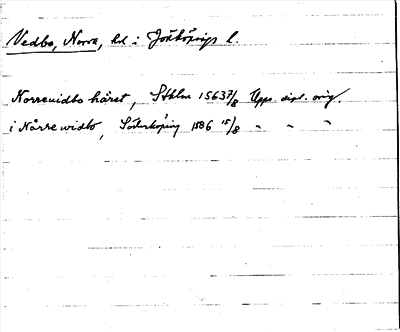 Vedbo, Norra, hd i Jönköpings l.
Norrevidbo häret, Sthlm 1563 7/8 Upps. dipl. orig.
i Nårrewidbo, Söderköping 1586 15/8 " " "